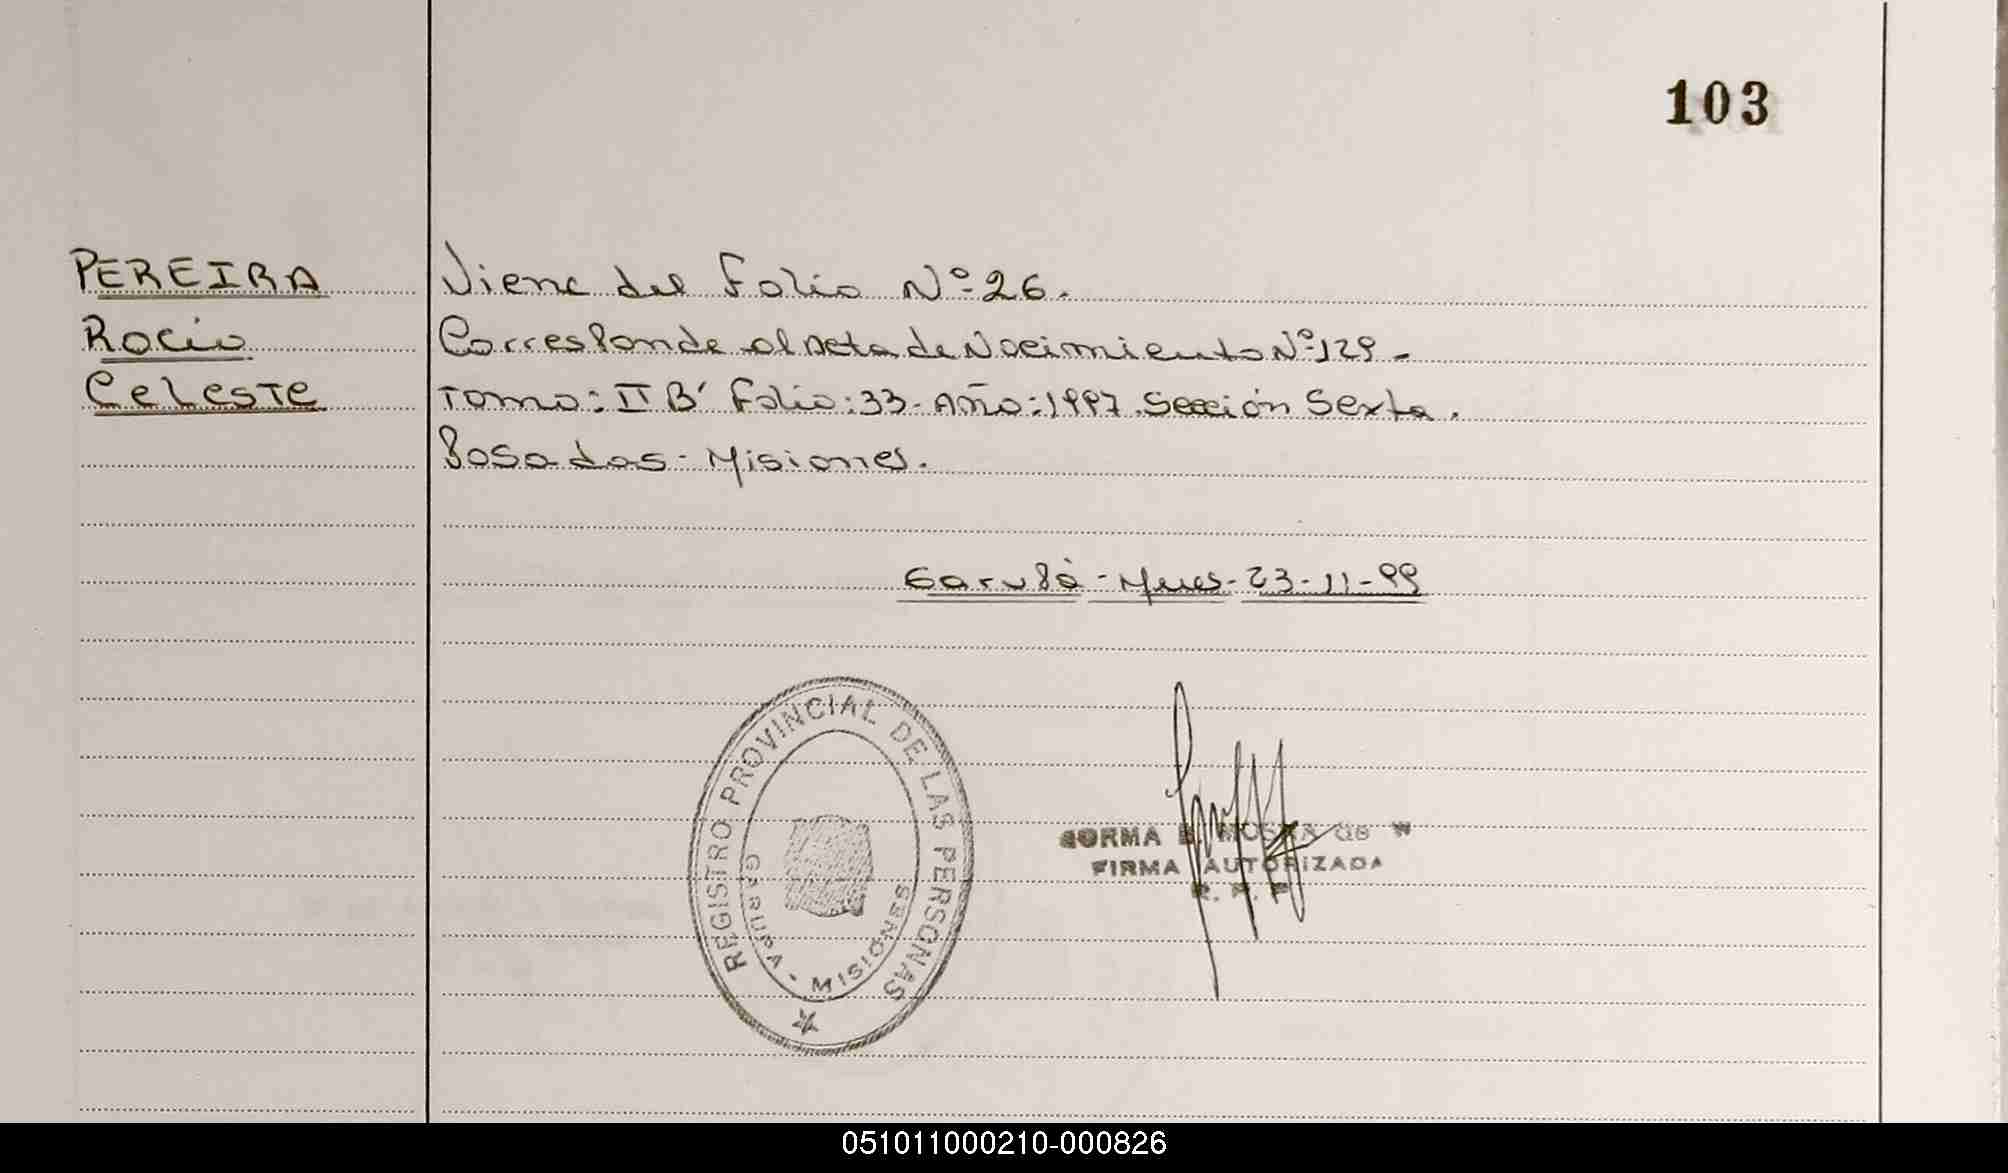 103
PEREIRA
Rocio
Celeste
Viene del Folio Nº 26.
Corresponde al Acta de Nacimiento Nº 129 -
Tomo: II B' Folio: 33 - Año: 1997. Sección Sexta.
Posadas - Misiones.
Garupá - Mnes - 23-11-99
REGISTRO PROVINCIAL DE LAS PERSONAS
GARUPA - MISIONES
NORMA de W
FIRMA AUTORIZADA
R. P. P
051011000210-000826